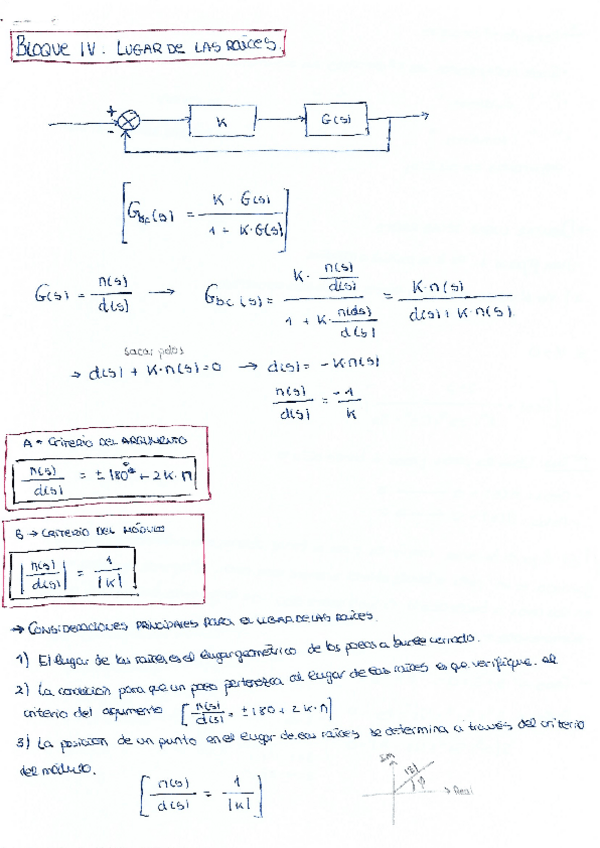 BLOQUE IV. LUGAR DE LAS RAICES.
+
-
K
G(s)
[G_bc(s) = K · G(s) / 1 + K·G(s)]
G(s) = n(s)/d(s) → G_bc(s) = K · n(s)/d(s) / 1 + K · n(s)/d(s) = K·n(s) / d(s) + K·n(s)
sacar polos
→ d(s) + K·n(s) = 0 → d(s) = -K·n(s)
n(s)/d(s) = -1/K
A → CRITERIO DEL ARGUMENTO
n(s)/d(s) = ±180° + 2K·π
B → CRITERIO DEL MÓDULO
|n(s)/d(s)| = 1/|K|
→ CONSIDERACIONES PRINCIPALES PARA EL LUGAR DE LAS RAICES.
1) El lugar de las raices, es el lugar geométrico de los polos a bucle cerrado.
2) La condición para que un polo pertenezca al lugar de las raices es que verifique el
criterio del argumento [n(s)/d(s) = ±180 + 2K·π]
3) La posición de un punto en el lugar de las raices se determina a través del criterio
del módulo.
[n(s)/d(s) = 1/|K|]
Im
|z|
φ
→ Real